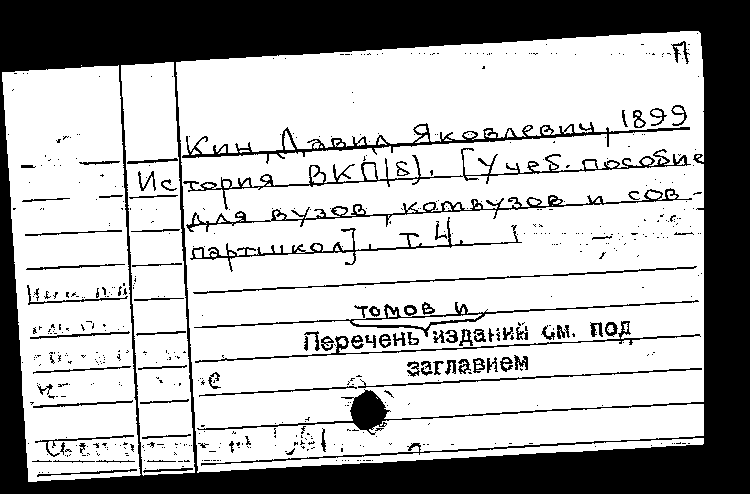 П
Кин, Давид Яковлевич, 1899
История ВКП(б). [Учеб. пособие
для вузов, комвузов и сов-
партшкол]. т. 4.
томов и
Перечень изданий см. под
заглавием